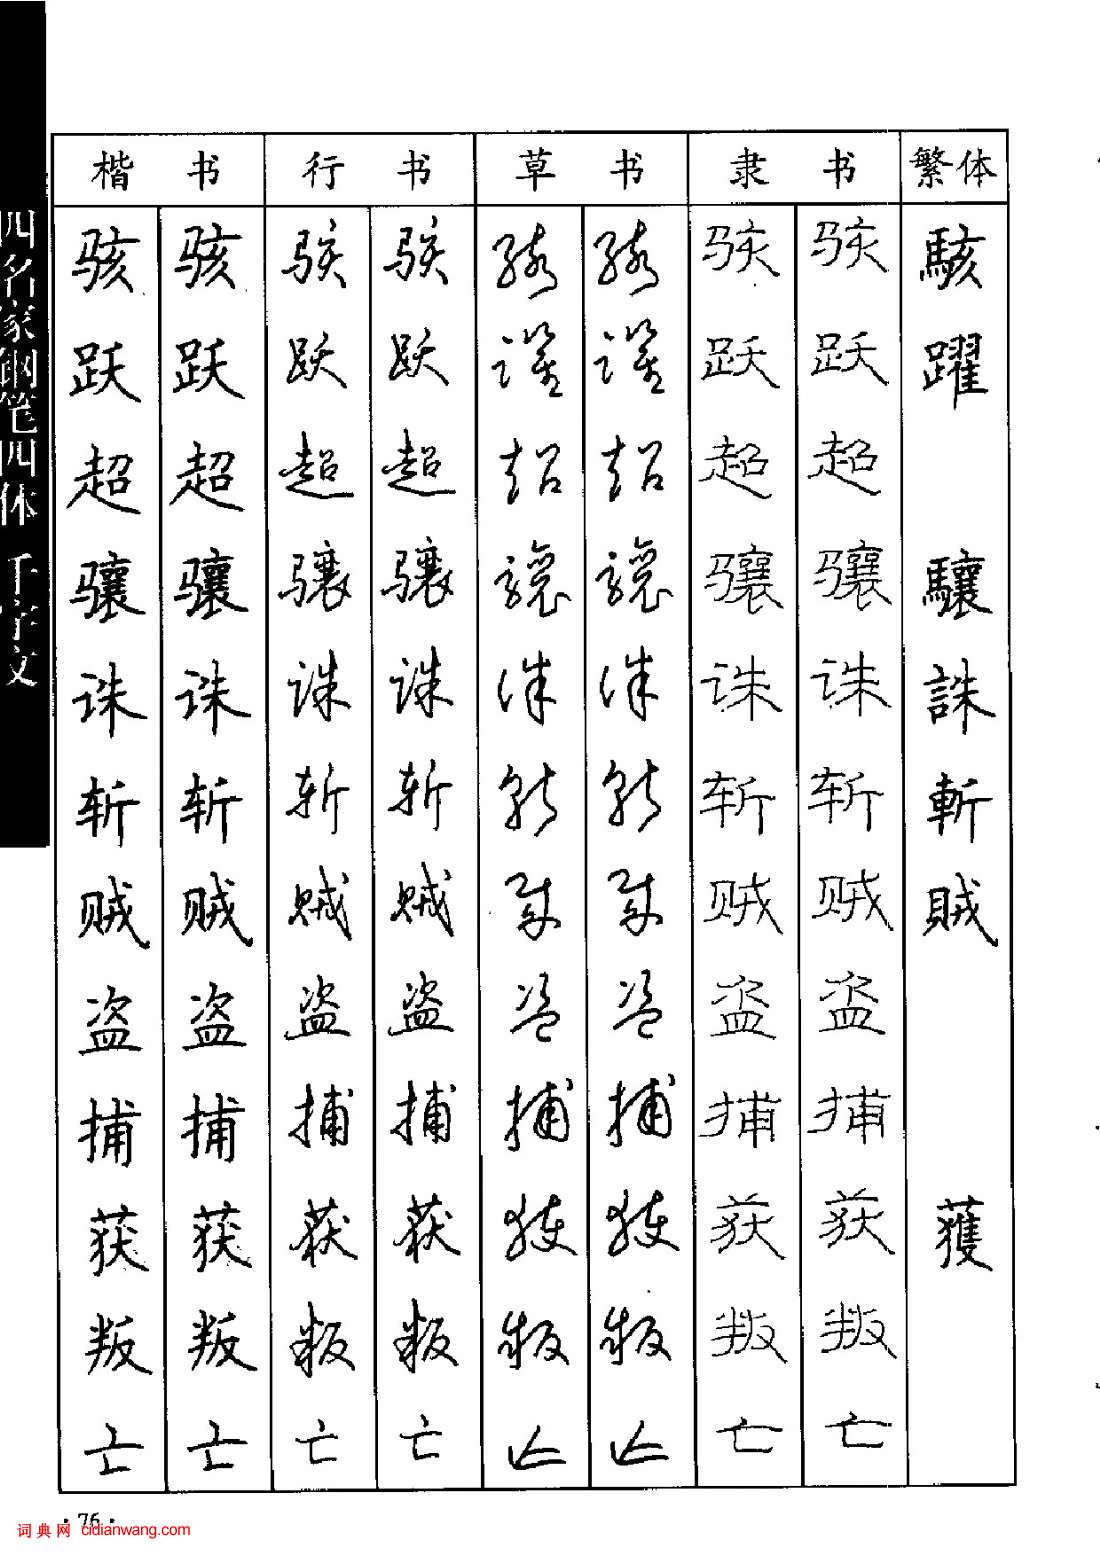 四名家钢笔四体 千字文
楷书 行书 草书 隶书 繁体
骇 骇 骇 骇 骇 骇 骇 骇 駭
跃 跃 跃 跃 跃 跃 跃 跃 躍
超 超 超 超 超 超 超 超
骧 骧 骧 骧 骧 骧 骧 骧 驤
诛 诛 诛 诛 诛 诛 诛 诛 誅
斩 斩 斩 斩 斩 斩 斩 斩 斬
贼 贼 贼 贼 贼 贼 贼 贼 賊
盗 盗 盗 盗 盗 盗 盗 盗
捕 捕 捕 捕 捕 捕 捕 捕
获 获 获 获 获 获 获 获 獲
叛 叛 叛 叛 叛 叛 叛 叛
亡 亡 亡 亡 亡 亡 亡 亡
·76·
词典网 cidianwang.com